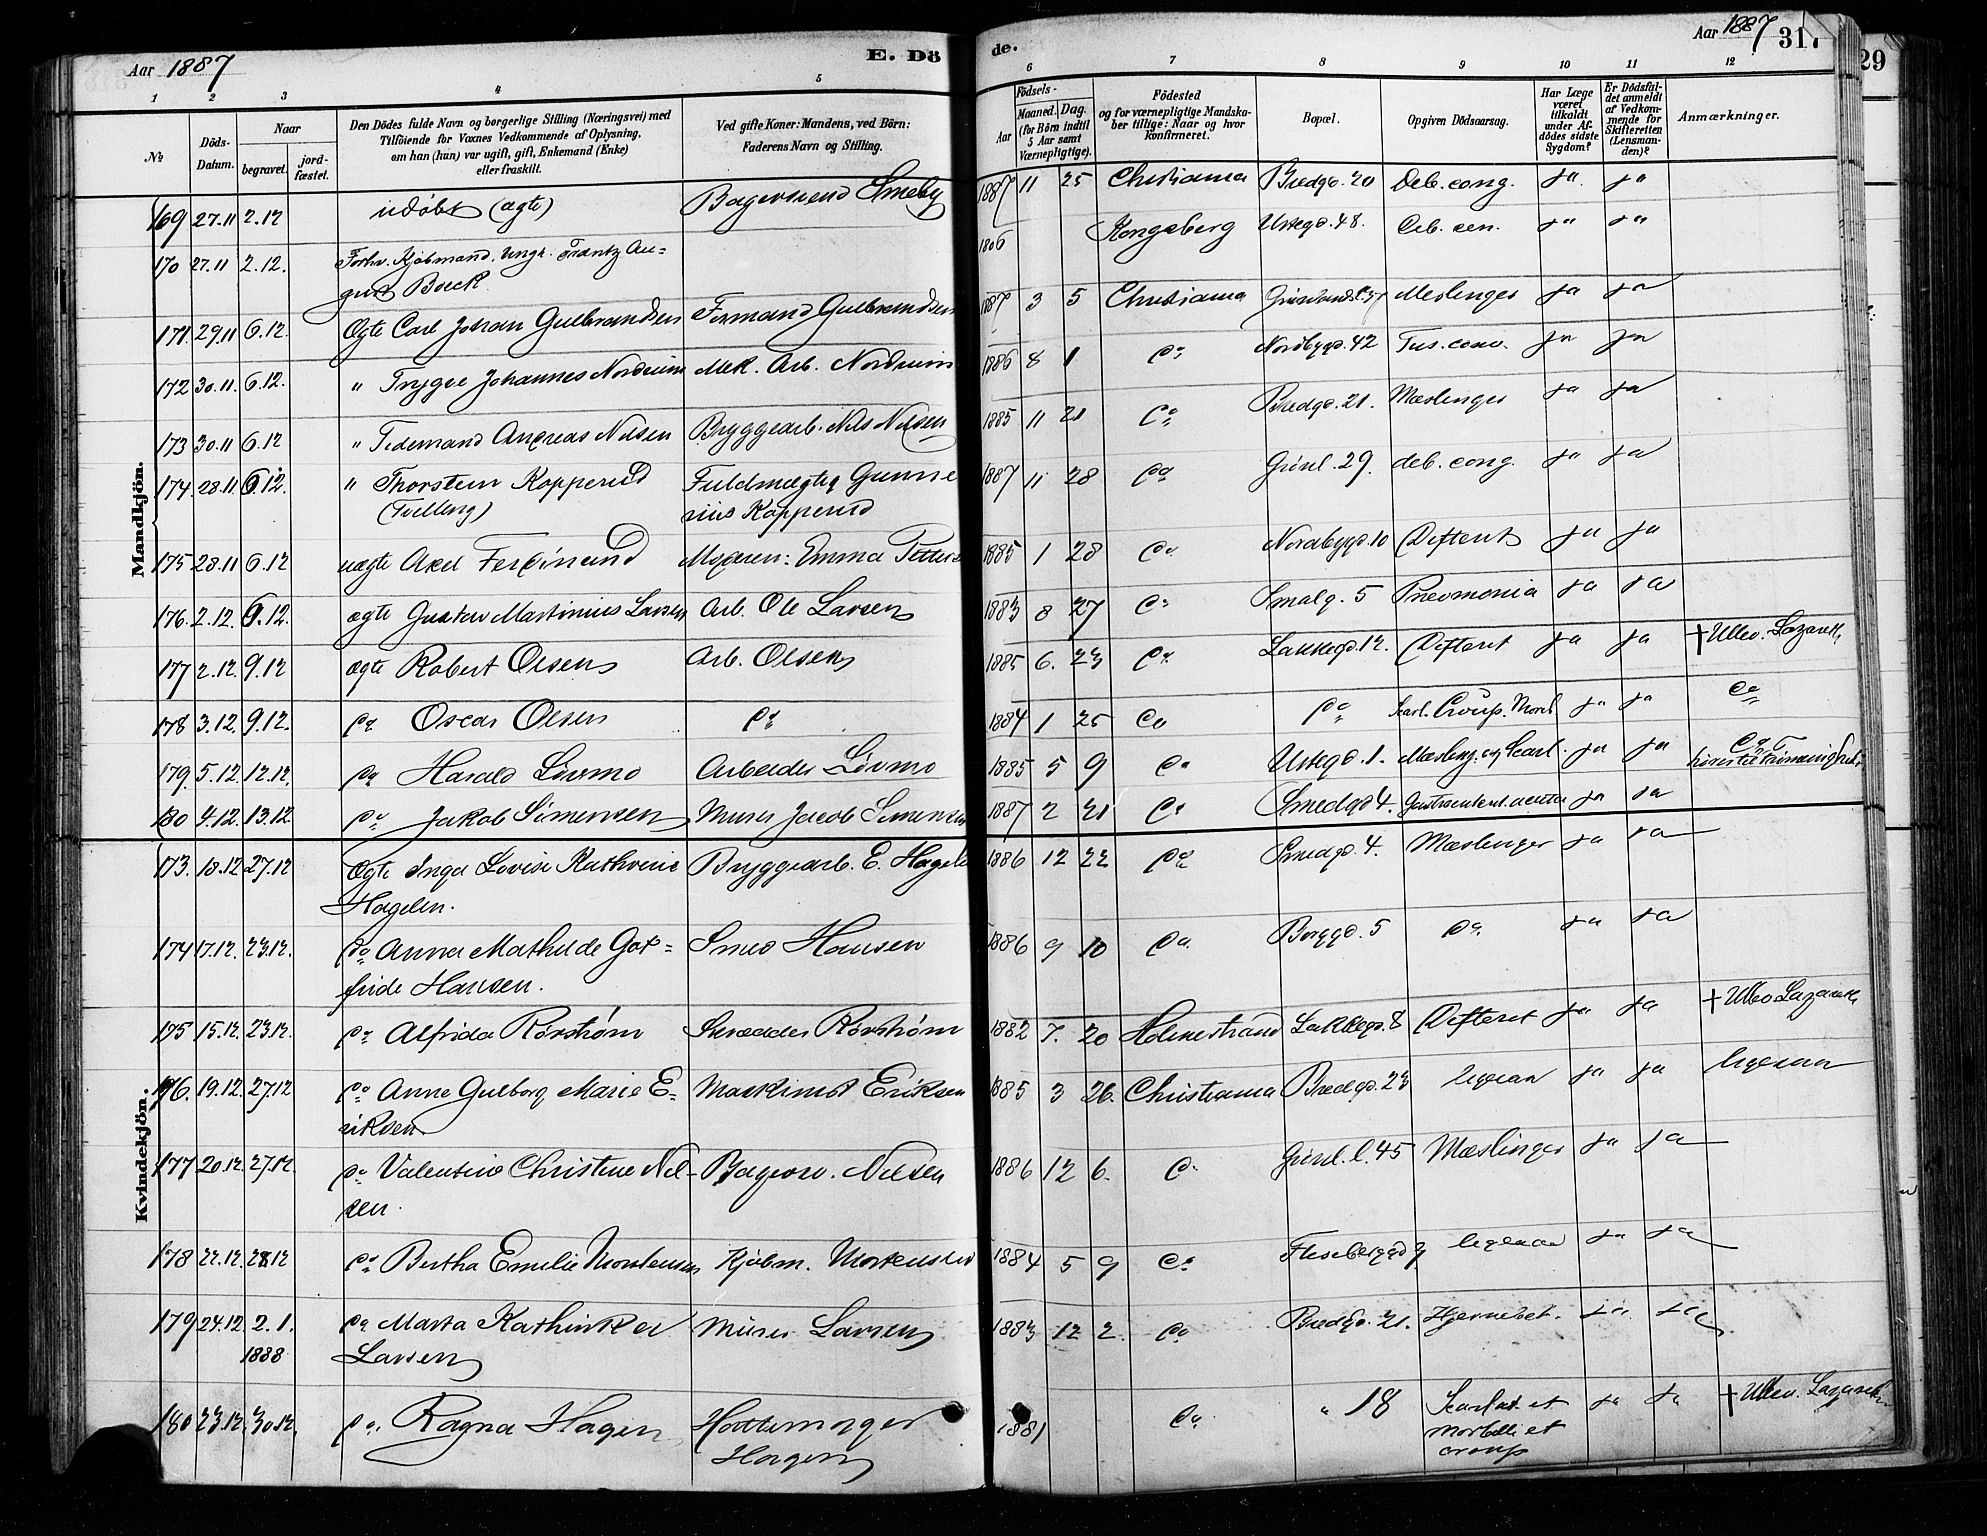 Aar 1887 E. Dö
de. Aar 1887 317
29
1 2 3 4 5 6 7 8 9 10 11 12
No
Döds-Datum.
Naar
begravet.
jord-fæstet.
Den Dödes fulde Navn og borgerlige Stilling (Næringsvei) med
Tilföiende for Voxnes Vedkommende af Oplysning,
om han (hun) var ugift, gift, Enkemand (Enke)
eller fraskilt.
Ved gifte Koner: Mandens, ved Börn:
Faderens Navn og Stilling.
Födsels-
Aar
Maaned. Dag.
(for Börn indtil
5 Aar samt
Værnepligtige).
Födested
og for værnepligtige Mandska-
ber tillige: Naar og hvor
konfirmeret.
Bopæl.
Opgiven Dödsaarsag.
Har Læge
været
tilkaldt
under Af-
dödes sidste
Sygdom?
Er Dödsfal-
det anmeldt
af Vedkom-
mende for
Skifteretten
(Lensman-
den)?
Anmærkninger.
Mandkjön.
169 27.11 2.12 udøbt (ægte) Smeby 1887 11 25 Christiania Bredgd. 20 Deb. cong. ja ja
170 27.11 2.12. Forhv. Kjøbmand, Ungk. Frantz Au- 1806 Kongsberg Urtegd. 48. Deb. sen. ja ja
gust Boeck
171. 29.11 6.12. Ægte Carl Johan Gulbrandsen Formand Gulbrandsen 1887 3 5 Christiania Meslinger ja ja
172 30.11. 6.12. " Trygve Johannes Nordrum Mek. Arb. Nordrum 1886 8 1 Do Nordbygd. 42 Tus. conv. ja ja
173 30.11 6.12 " Tidemand Andreas Nilsen Bryggearb. Nils Nilsen 1885 11 21 Do Bredgd. 21. Mæslinger ja ja
174. 28.11. 6.12. " Thorstein Kopperud Fuldmægtig Gunne 1887 11 28 Do Grønl. 29. deb. cong. ja ja
(Tvilling) rius Kopperud
175 28.11 6.12 uægte Axel Ferdinand Moderen: Emma Petters 1885 1 28 Do Nordbygd. 10 Difterit ja ja
176. 2.12. 6.12. ægte Gustav Martinius Larsen Arb. Ole Larsen 1883 8 27 Do Smalg. 5 Pneumonia ja ja
177 2.12. 9.12 ægte Robert Olsen Arb. Olsen 1885 6. 23 Do Lakkegd. 12. Difterit ja ja † Ullev. Lazareth
178 3.12. 9.12. Do Oscar Olsen Do 1884 1 25 Do Do Scarl. Croup. Morb. ja ja Do
179. 5.12. 12.12. Do Harald Lövmo Arbeider Lövmo 1885 5 9 Do Urtegd. 1. Mæsling. og Scarl. ja ja Do
180 4.12. 13.12 Do Jakob Simensen Murer Jacob Simensen 1887 2 21 Do Smedgd 4. Gastroenterit. acuta ja ja
Kvindekjön.
173. 18.12 27.12 Ægte Inga Lovise Kathrine Bryggearb. E. Hagelin 1886 12 22 Do Smedgd. 4. Mæslinger ja ja
Hagelin.
174 17.12. 23.12. Do Anna Mathilde Got- Smed Hansen 1886 9 10 Do Borggd. 5 Do ja ja
fride Hansen.
175 15.12. 23.12. Do Alfrida Rørstrøm Skrædder Rørstrøm 1882 7. 20 Holmestrand Lakkegd. 8 Difterit ja ja † Ullev Lazareth
176. 19.12. 27.12 Do Anne Gulborg Marie E- Maskinist Eriksen 1885 3 26. Christiania Bredgd. 23 ligesaa ja ja ligesaa
riksen
177 20.12. 27.12. Do Valentine Christine Nil- Nilsen 1886 12 6. Do Grønl. l. 45 Mæslinger ja ja
sen.
178 22.12. 28.12 Do Bertha Emilie Mortensen Kjøbm. Mortensen 1884 5 9 Do ligesaa ja ja
179 24.12. 2.1. Do Marta Kathinka Murer Larsen 1883 12 2. Do Bredgd. 21. Hjernebet. ja ja
1888 Larsen
180 23.12. 30.12. Do Ragna Hagen 1881 Do " 18 Scarlat. et ja ja † Ullev. Lazareth
Hagen morbilli et
croup